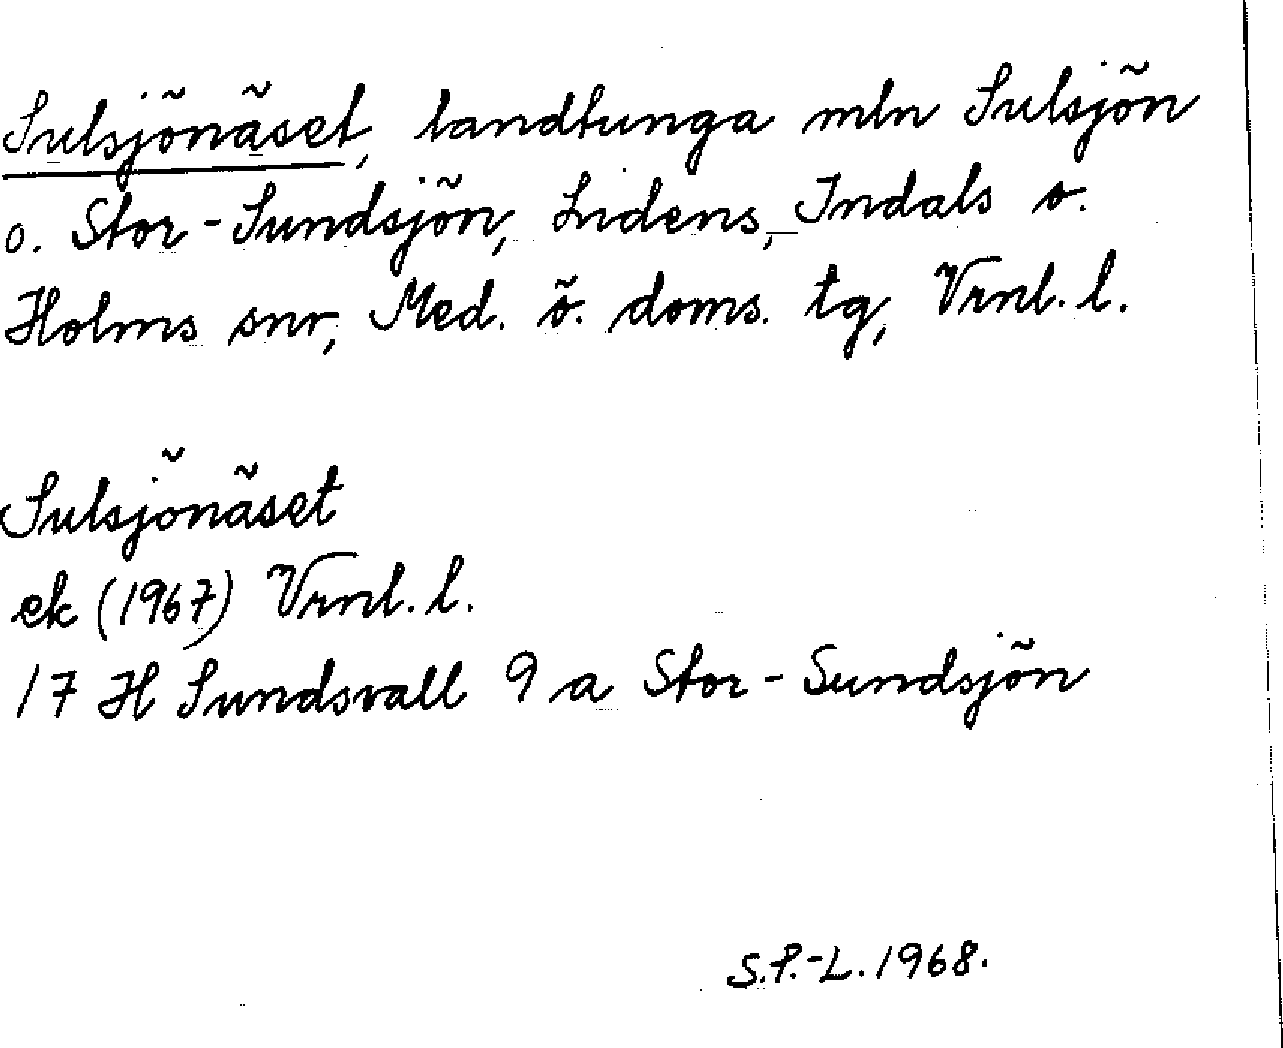 Sulsjönäset, landtunga mln Sulsjön
o. Stor-Sundsjön, Lidens, Indals o.
Holms snr, Med. ö. doms. tg, Vrnl. l.
Sulsjönäset
ek (1967) Vrnl. l.
17 H Sundsvall 9 a Stor-Sundsjön
S.P.-L. 1968.